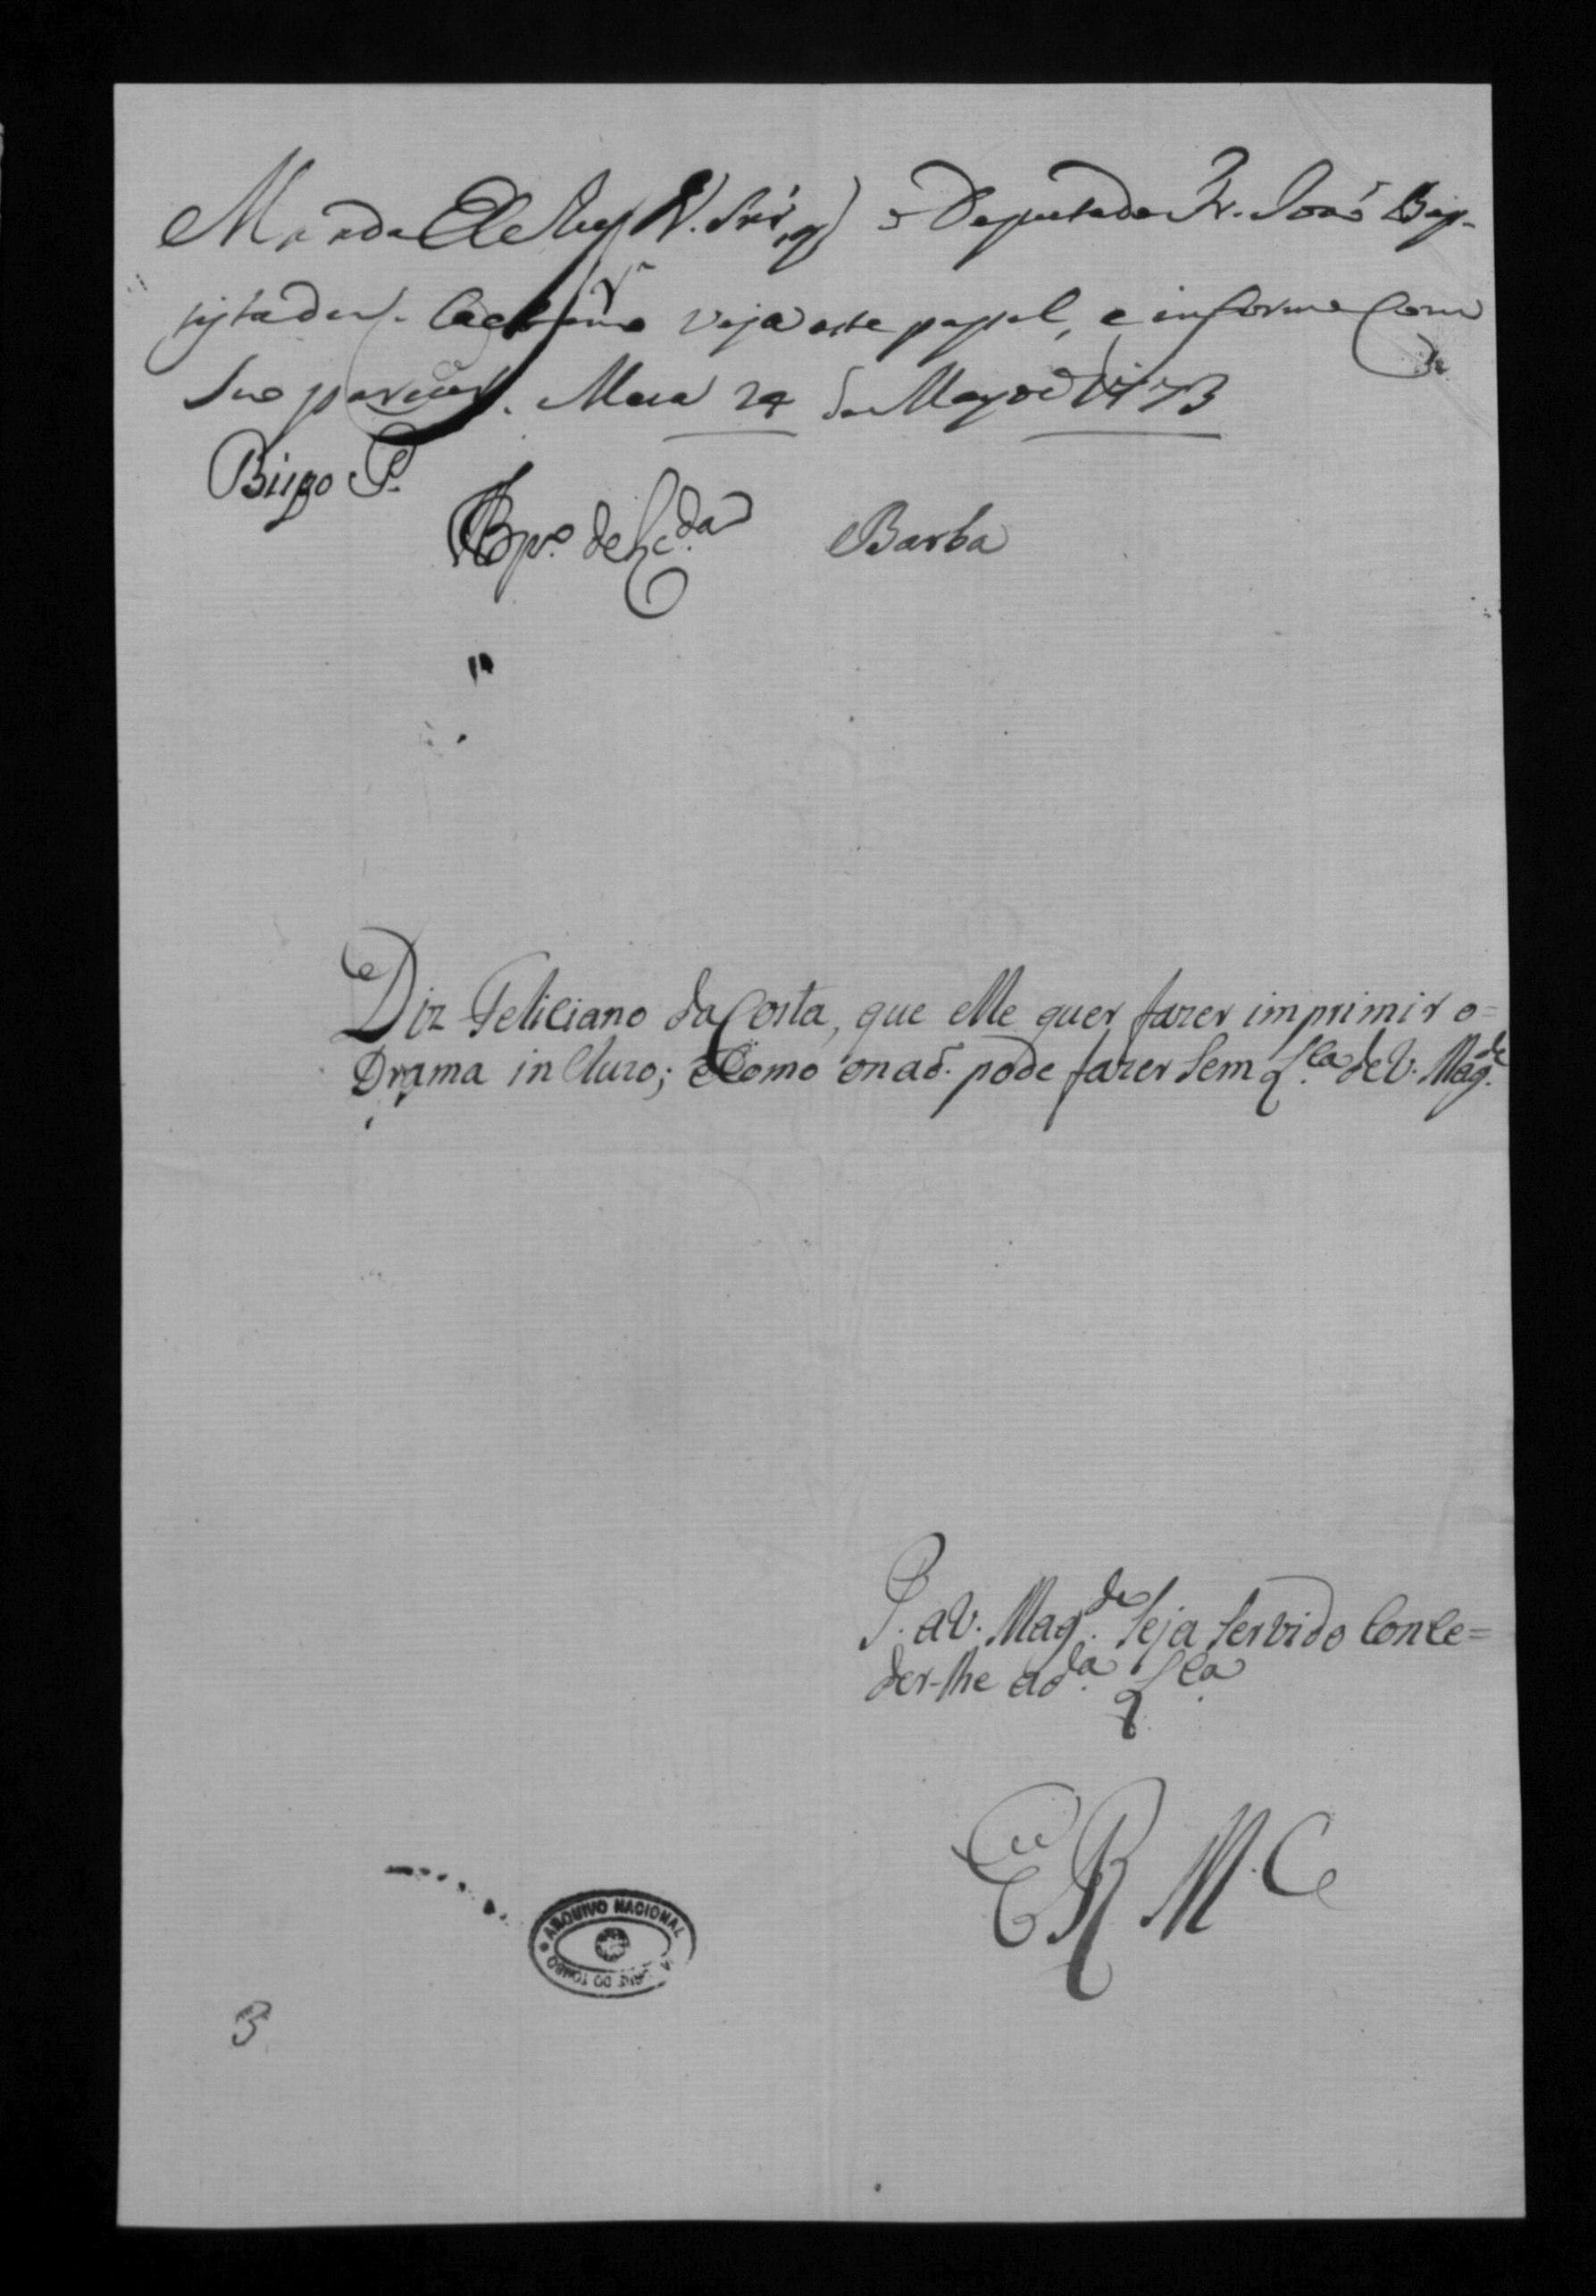 Manda ElRey N. Snr̃, q o Deputado Fr. Joaõ Bap-
tista de S. Caetano veja este papel, e informe com
seu parecer. Meza 24 de Mayo de 1773
Bispo P.
Barba
Diz Feliciano da Costa, que elle quer fazer imprimir o=
Drama incluzo; e como o naõ. pode fazer sem L.ca de V. Mag.de
P. a V. Mag.de seja servido conce=
der-lhe a d.a L.ca
E R M.ce
ARQUIVO NACIONAL
DA TORRE DO TOMBO
3